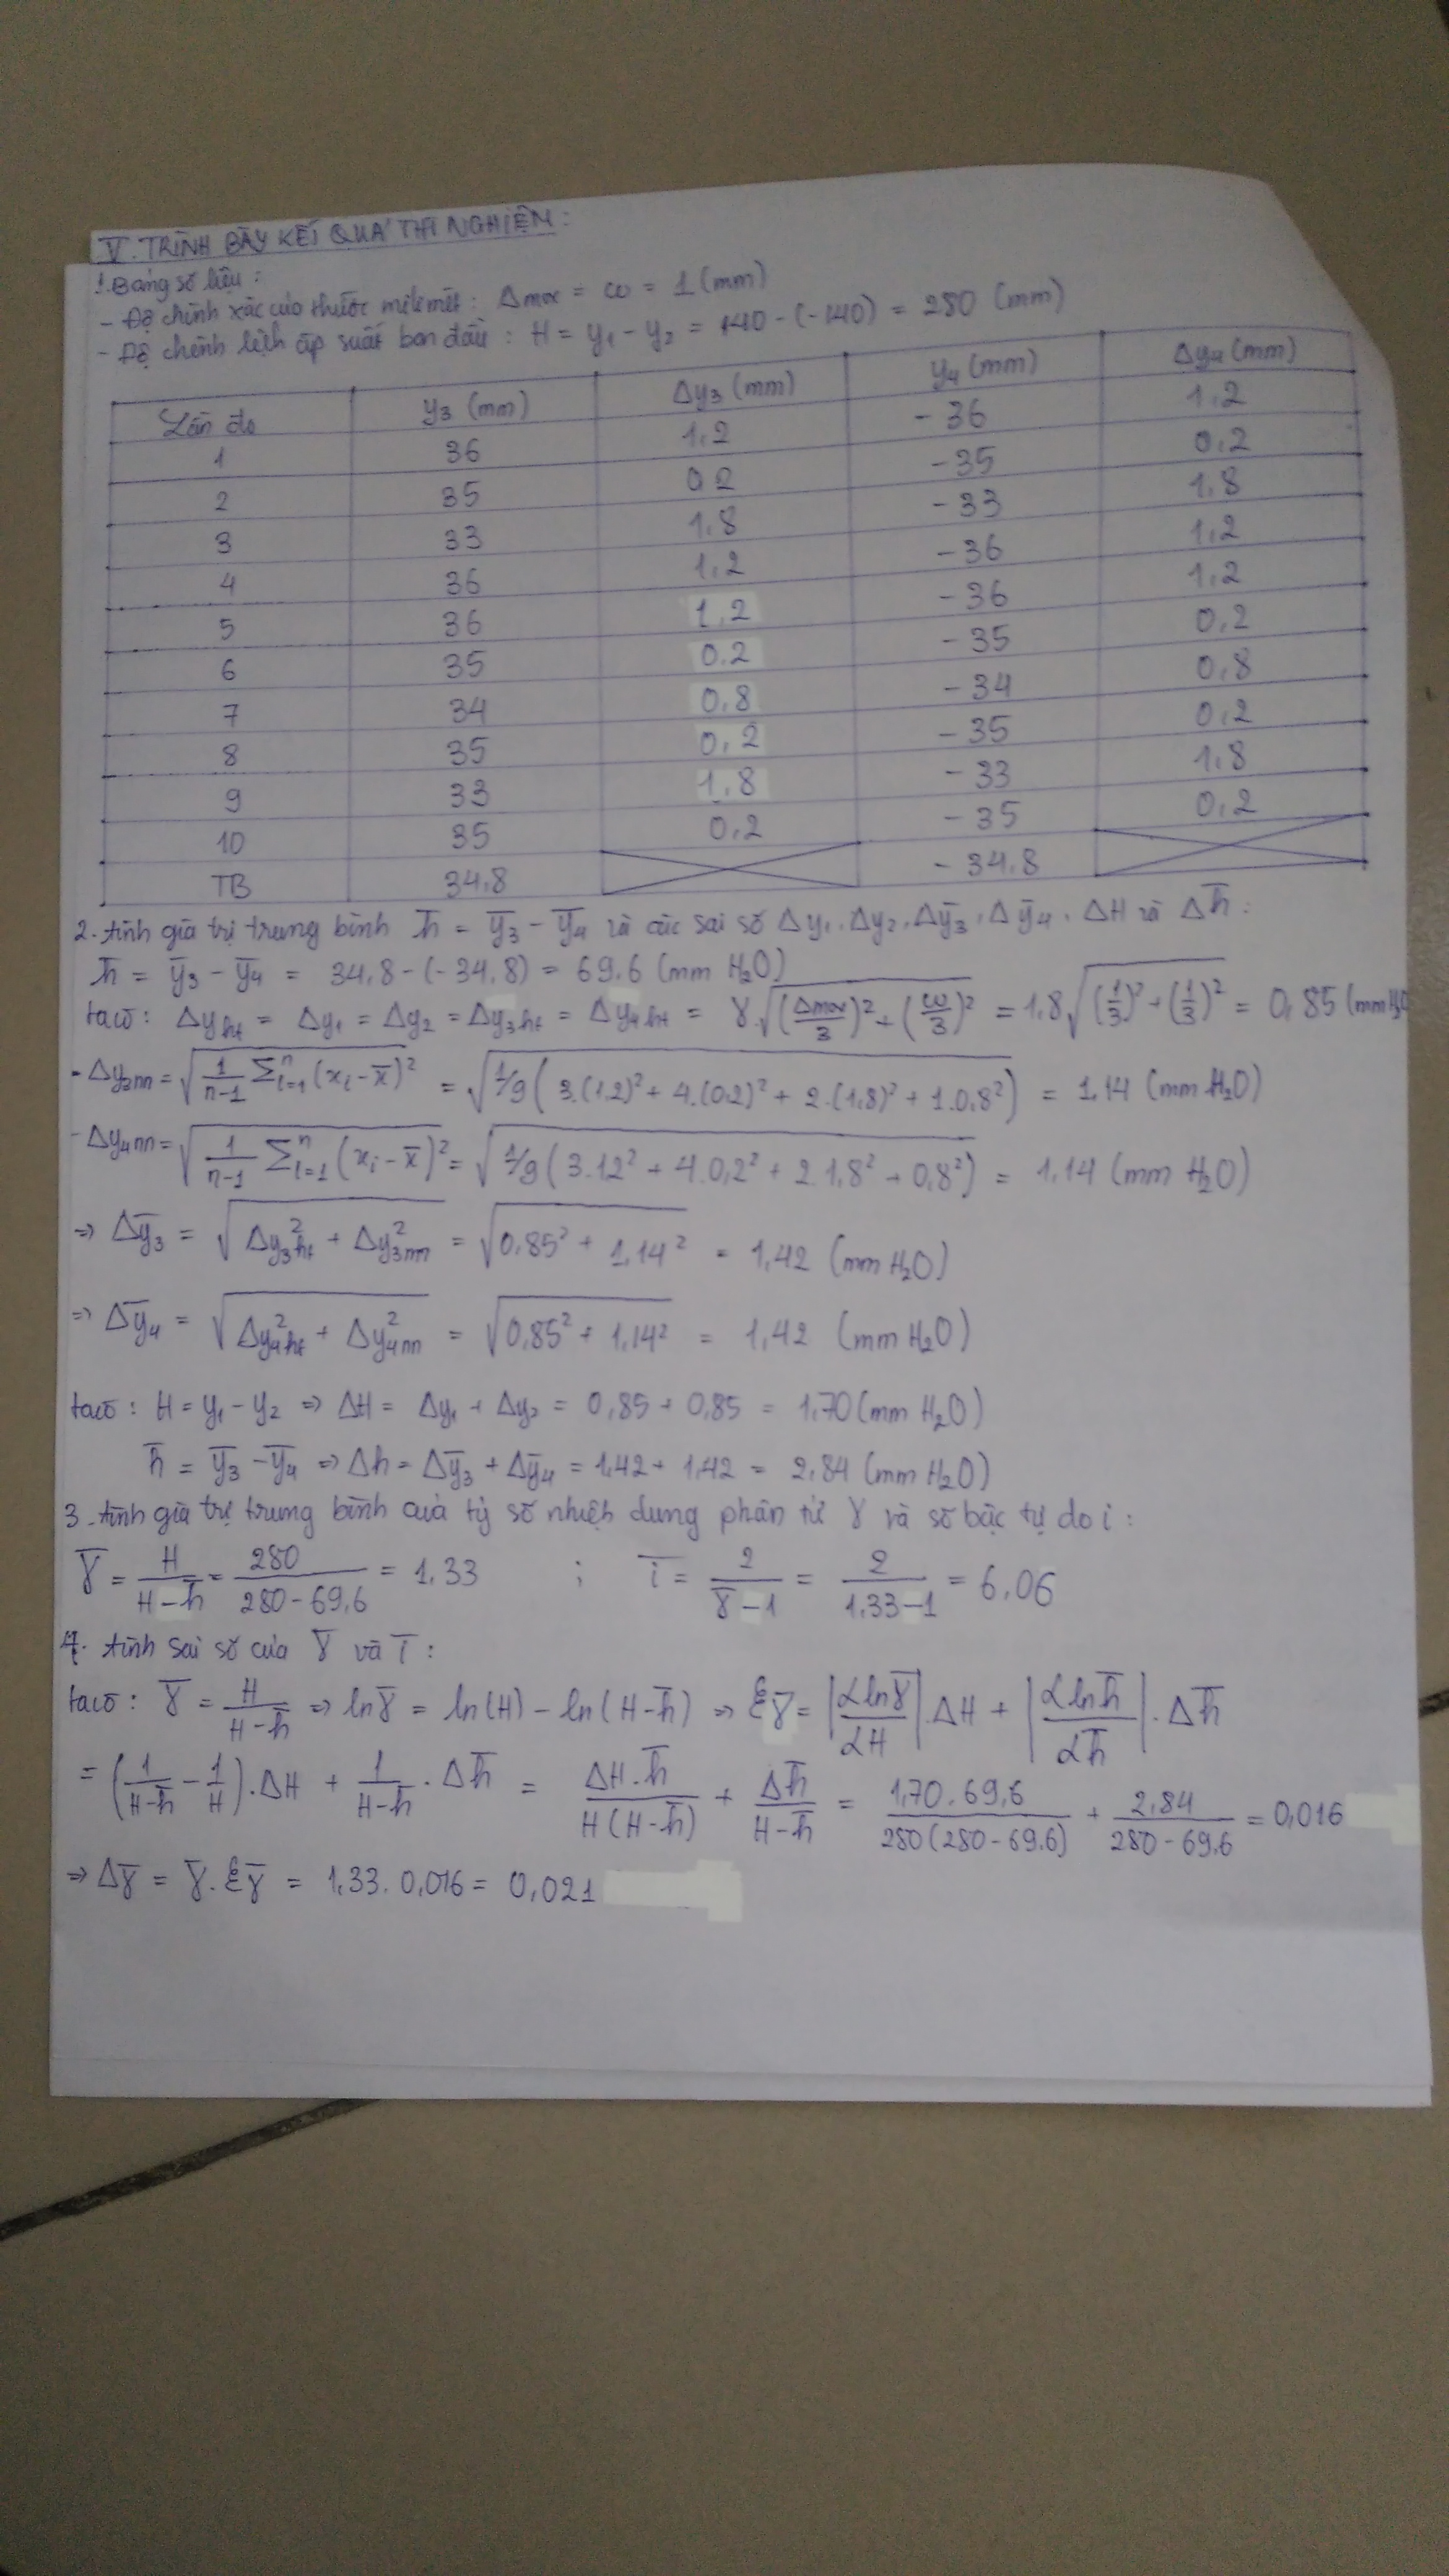 V. TRÌNH BÀY KẾT QUẢ THÍ NGHIỆM:
1. Bảng số liệu :
- Độ chính xác của thước milimét : Δmax = ω = 1 (mm)
- Độ chênh lệch áp suất ban đầu : H = y₁ - y₂ = 140 - (-140) = 280 (mm)
Lần đo y₃ (mm) Δy₃ (mm) y₄ (mm) Δy₄ (mm)
1 36 1,2 - 36 1,2
2 35 0,2 - 35 0,2
3 33 1,8 - 33 1,8
4 36 1,2 - 36 1,2
5 36 1,2 - 36 1,2
6 35 0,2 - 35 0,2
7 34 0,8 - 34 0,8
8 35 0,2 - 35 0,2
9 33 1,8 - 33 1,8
10 35 0,2 - 35 0,2
TB 34,8 - 34,8
2. tính giá trị trung bình h̄ = ȳ₃ - ȳ₄ và các sai số Δy₁, Δy₂, Δȳ₃, Δȳ₄, ΔH và Δh̄ :
h̄ = ȳ₃ - ȳ₄ = 34,8 - (-34,8) = 69,6 (mm H₂O)
ta có : Δy_ht = Δy₁ = Δy₂ = Δy₃ht = Δy₄ht = γ.√((Δmax/3)² + (ω/3)²) = 1,8√((1/3)² + (1/3)²) = 0,85 (mm H₂O
- Δy₃nn = √(1/(n-1) Σⁿᵢ₌₁ (xᵢ - x̄)²) = √(1/9 (3.(1,2)² + 4.(0,2)² + 2.(1,8)² + 1.0,8²)) = 1,14 (mm H₂O)
- Δy₄nn = √(1/(n-1) Σⁿᵢ₌₁ (xᵢ - x̄)²) = √(1/9 (3.1,2² + 4.0,2² + 2.1,8² + 0,8²)) = 1,14 (mm H₂O)
⇒ Δȳ₃ = √(Δy₃ht² + Δy₃nn²) = √(0,85² + 1,14²) = 1,42 (mm H₂O)
⇒ Δȳ₄ = √(Δy₄ht² + Δy₄nn²) = √(0,85² + 1,14²) = 1,42 (mm H₂O)
ta có : H = y₁ - y₂ ⇒ ΔH = Δy₁ + Δy₂ = 0,85 + 0,85 = 1,70 (mm H₂O)
h̄ = ȳ₃ - ȳ₄ ⇒ Δh = Δȳ₃ + Δȳ₄ = 1,42 + 1,42 = 2,84 (mm H₂O)
3. tính giá trị trung bình của tỷ số nhiệt dung phân tử γ và số bậc tự do i :
γ̄ = H/(H - h̄) = 280/(280 - 69,6) = 1,33 ; ī = 2/(γ̄ - 1) = 2/(1,33 - 1) = 6,06
4. tính sai số của γ̄ và ī :
ta có : γ̄ = H/(H - h̄) ⇒ lnγ̄ = ln(H) - ln(H - h̄) ⇒ εγ̄ = |αlnγ̄/αH|.ΔH + |αlnh̄/αh̄|.Δh̄
= (1/(H - h̄) - 1/H).ΔH + 1/(H - h̄).Δh̄ = ΔH.h̄/(H(H - h̄)) + Δh̄/(H - h̄) = 1,70.69,6/(280(280 - 69,6)) + 2,84/(280 - 69,6) = 0,016
⇒ Δγ̄ = γ̄.εγ̄ = 1,33. 0,016 = 0,021